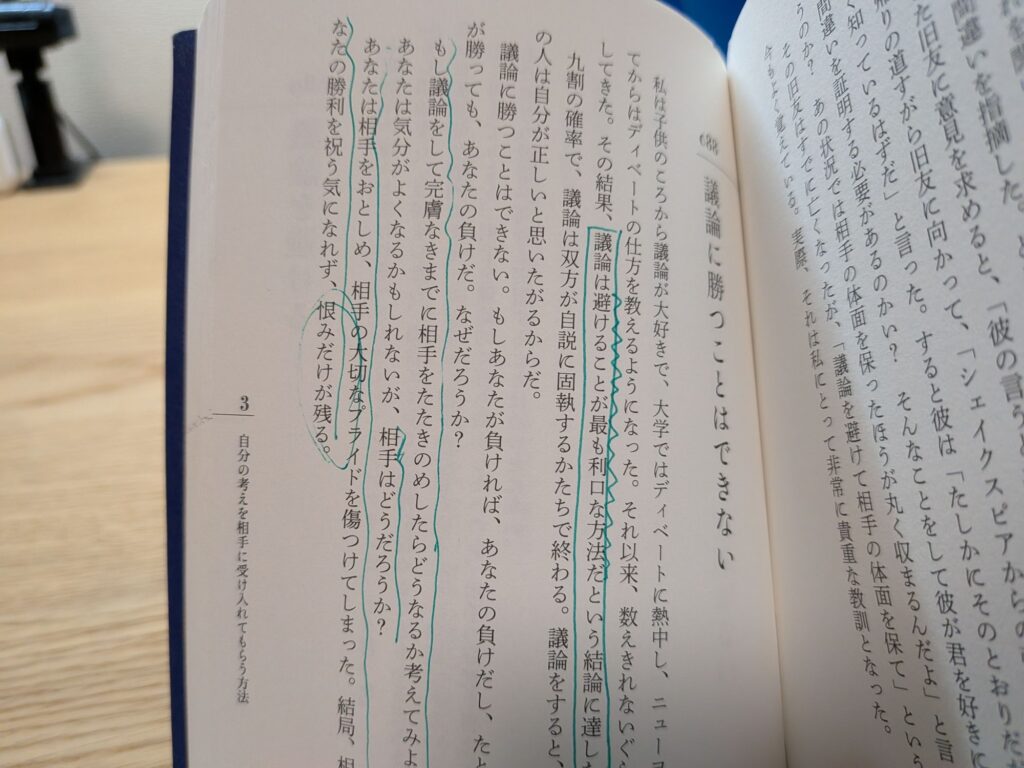 間違いを指摘した。
た旧友に意見を求めると、「彼の言うと
帰りの道すがら旧友に向かって、「シェイクスピアからの
く知っているはずだ」と言った。すると彼は「たしかにそのとおりだ
間違いを証明する必要があるのかい？　そんなことをして彼が君を好きに
うのか？　あの状況では相手の体面を保ったほうが丸く収まるんだよ」と言
その旧友はすでに亡くなったが、「議論を避けて相手の体面を保て」という
今もよく覚えている。実際、それは私にとって非常に貴重な教訓となった。
088
議論に勝つことはできない
私は子供のころから議論が大好きで、大学ではディベートに熱中し、ニューヨ
てからはディベートの仕方を教えるようになった。それ以来、数えきれないぐら
してきた。その結果、議論は避けることが最も利口な方法だという結論に達し
九割の確率で、議論は双方が自説に固執するかたちで終わる。議論をすると、
の人は自分が正しいと思いたがるからだ。
議論に勝つことはできない。もしあなたが負ければ、あなたの負けだし、たと
が勝っても、あなたの負けだ。なぜだろうか？
もし議論をして完膚なきまでに相手をたたきのめしたらどうなるか考えてみよ
あなたは気分がよくなるかもしれないが、相手はどうだろうか？
あなたは相手をおとしめ、相手の大切なプライドを傷つけてしまった。結局、相
なたの勝利を祝う気になれず、恨みだけが残る。
3
自分の考えを相手に受け入れてもらう方法